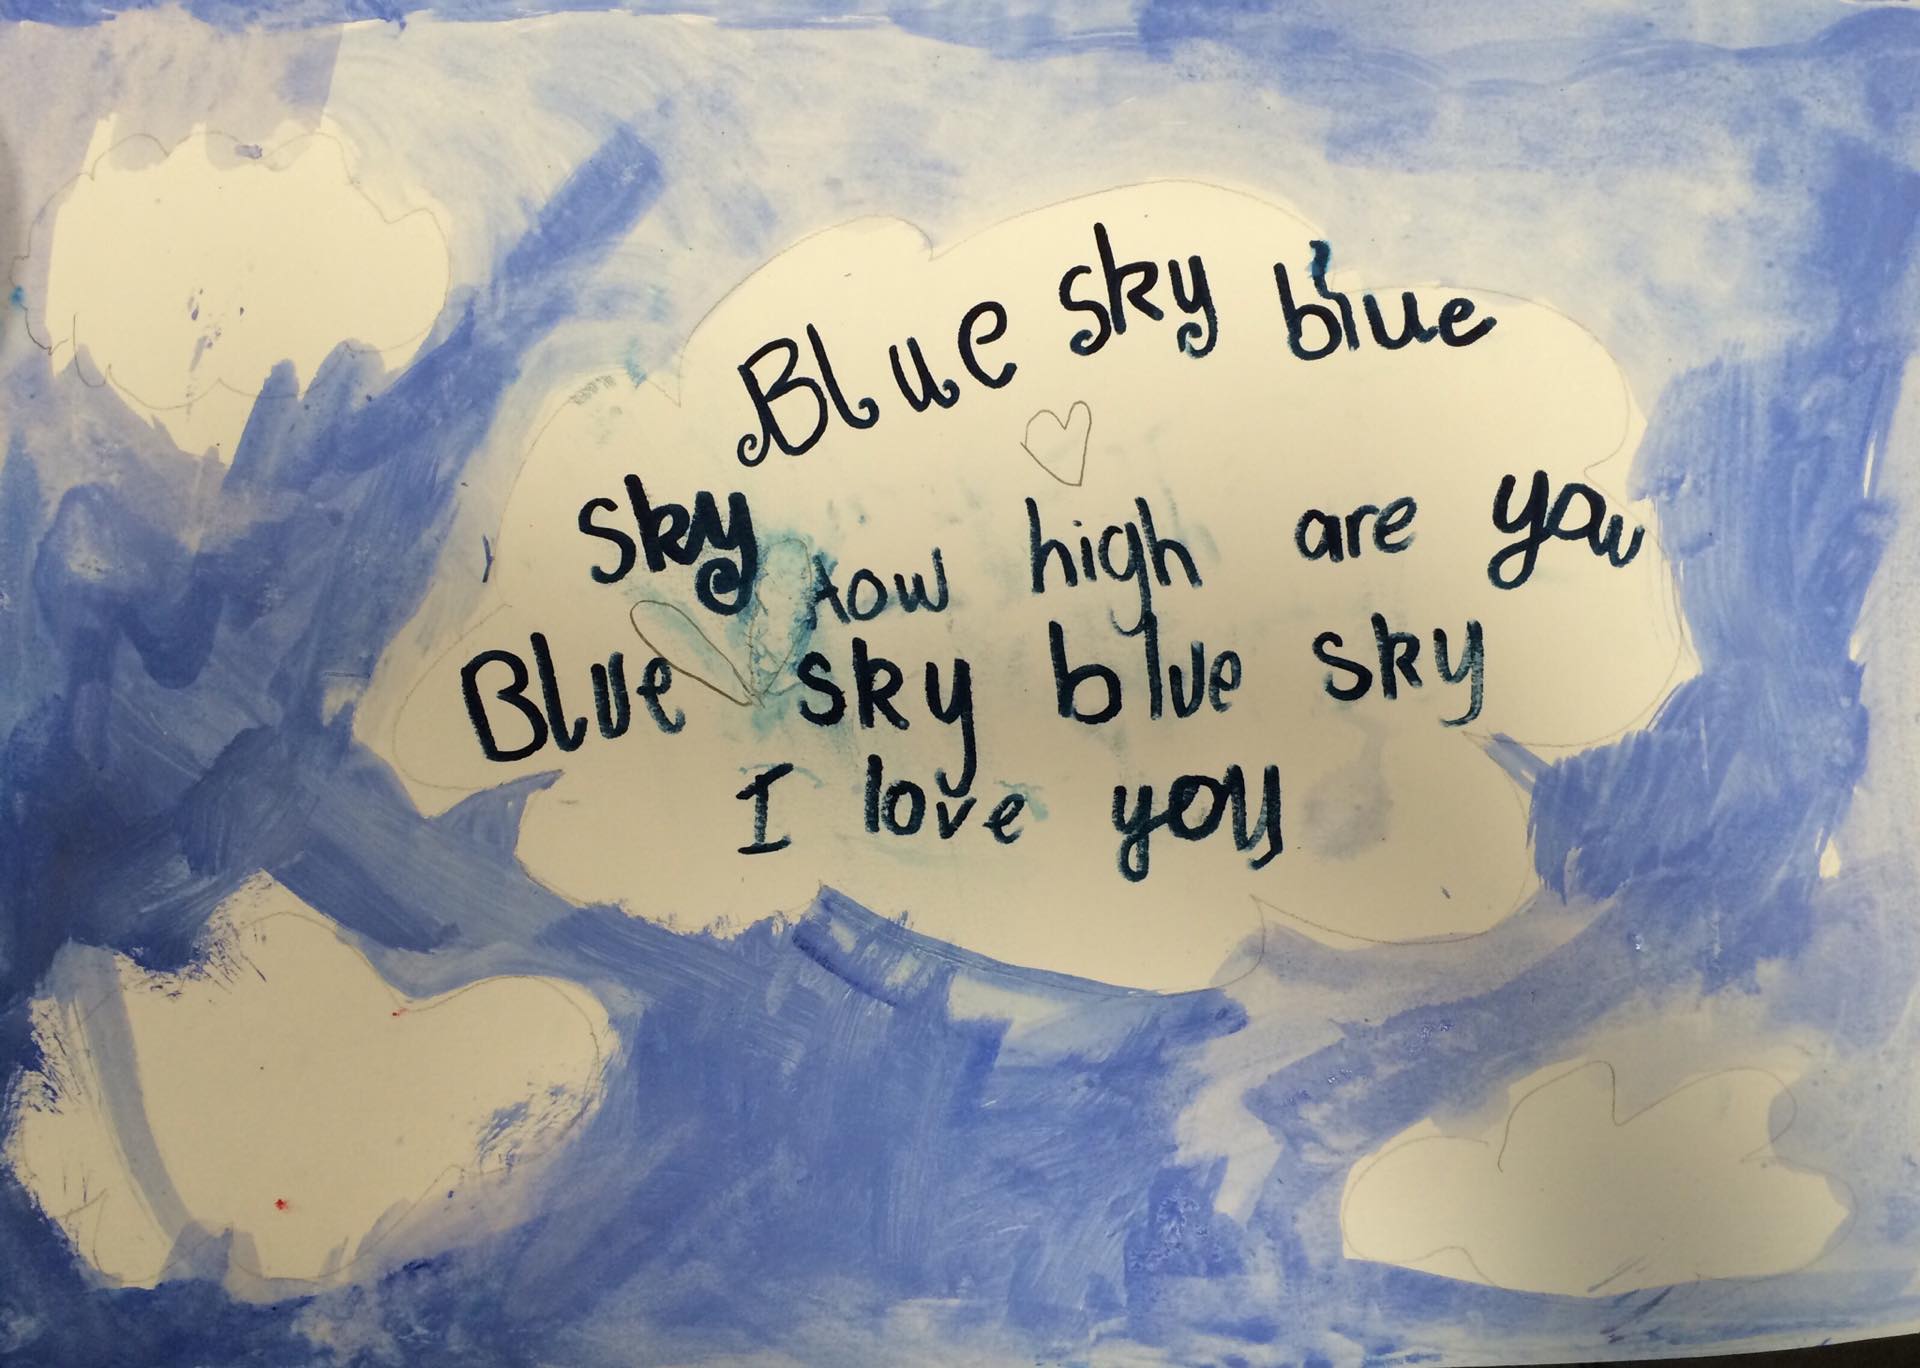 Blue sky blue
sky How high are you
Blue sky blue sky
I love you